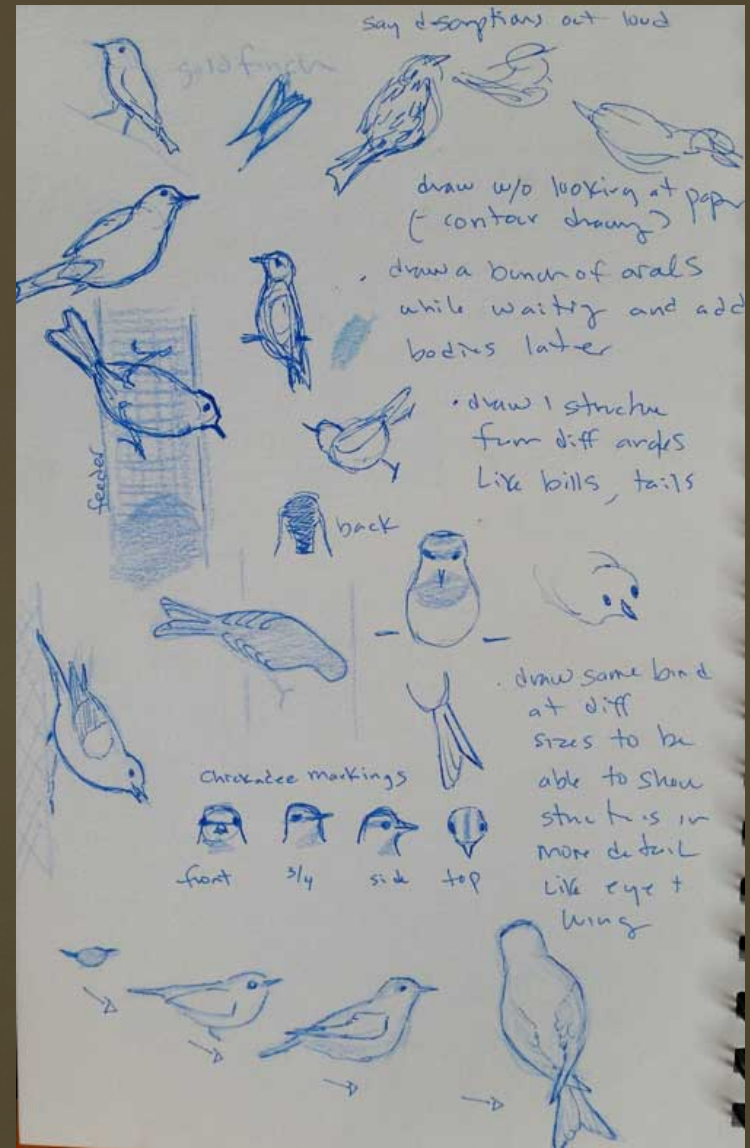 say descriptions out loud
goldfinch
draw w/o looking at paper
(- contour drawing)
· draw a bunch of ovals
while waiting and add
bodies later
· draw 1 structure
from diff angles
Like bills, tails
feeder
back
· draw same bird
at diff
sizes to be
able to show
structures in
more detail
like eye +
wing
Chickadee markings
front 3/4 side top